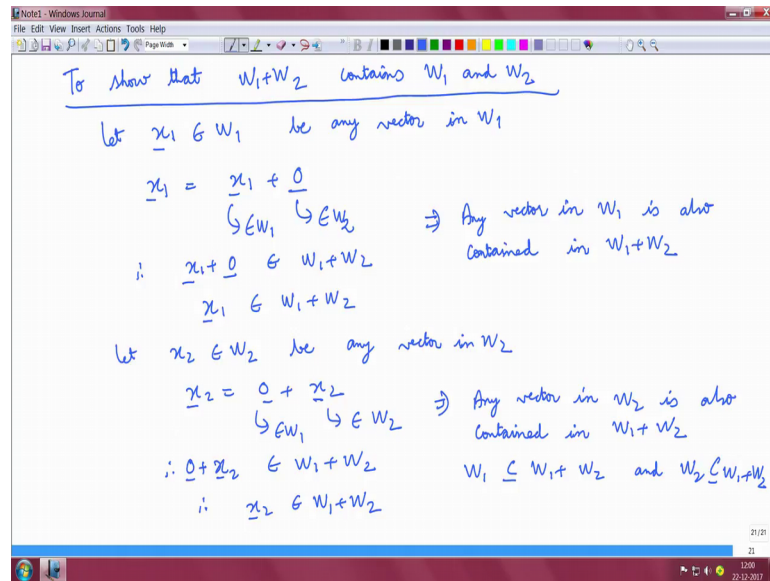 Note1 - Windows Journal
File Edit View Insert Actions Tools Help
Page Width
To show that W1+W2 contains W1 and W2
let x1 ∈ W1 be any vector in W1
x1 = x1 + 0
↳ ∈W1 ↳ ∈W2 ⇒ Any vector in W1 is also
contained in W1+W2
∴ x1+0 ∈ W1+W2
x1 ∈ W1+W2
let x2 ∈ W2 be any vector in W2
x2 = 0 + x2
↳ ∈W1 ↳ ∈ W2 ⇒ Any vector in W2 is also
contained in W1+W2
∴ 0+x2 ∈ W1+W2 W1 ⊆ W1+W2 and W2 ⊆ W1+W2
∴ x2 ∈ W1+W2
21/21
21
12:00
22-12-2017